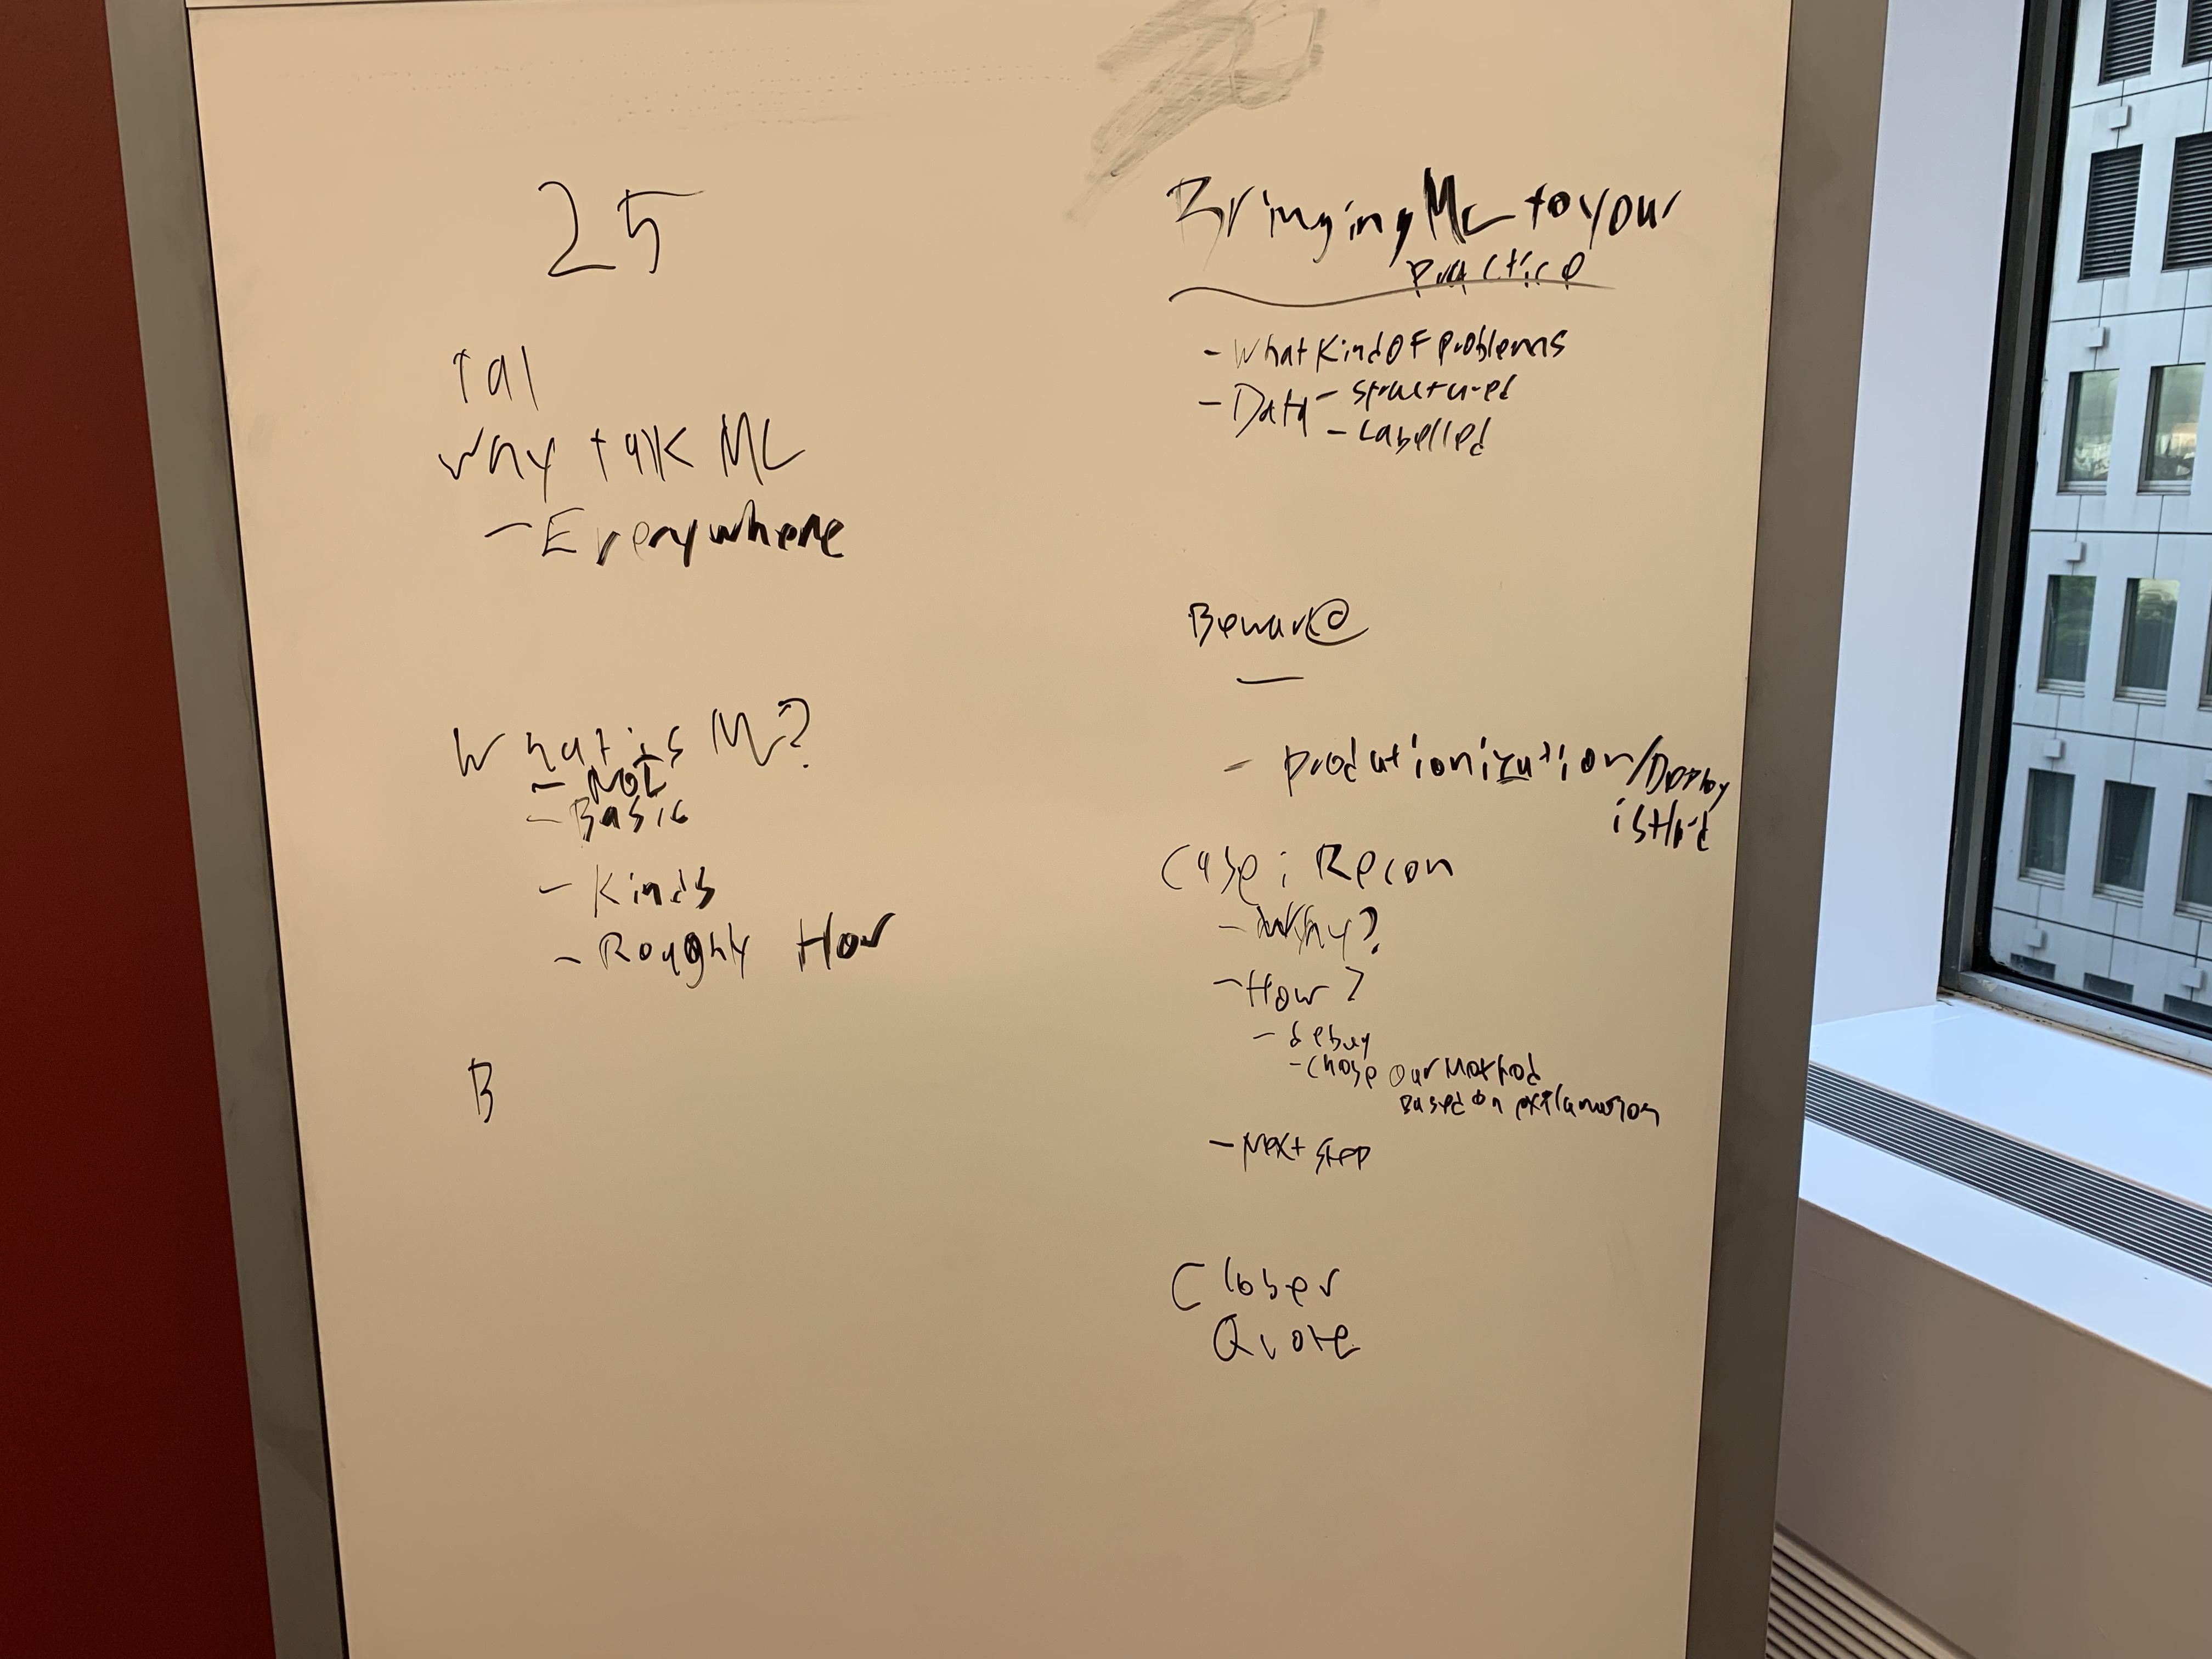 25
tal
Why talk ML
- Everywhere
What is ML?
- Not
- Basic
- Kinds
- Roughly How
B
Bringing ML to your
practice
- What Kind OF Problems
- Data - structured
- Labelled
Beware
- Produtionization/Deploy
is Hard
Case: Recon
- Why?
- How?
- debug
- Chose our Method
Based on explanation
- Next step
Closer
Quote